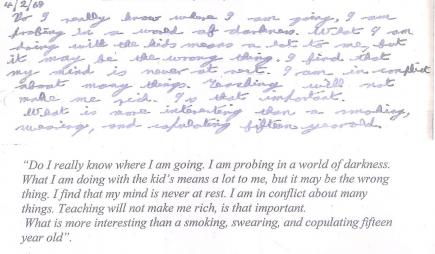 4/2/69
Do I really know where I am going, I am
probing in a world of darkness. What I am
doing with the kids means a lot to me, but
it may be the wrong thing. I find that
my mind is never at rest. I am in conflict
about many things. Teaching will not
make me rich. Is that important.
What is more interesting than a smoking,
swearing, and copulating fifteen year old.
"Do I really know where I am going. I am probing in a world of darkness.
What I am doing with the kid's means a lot to me, but it may be the wrong
thing. I find that my mind is never at rest. I am in conflict about many
things. Teaching will not make me rich, is that important.
What is more interesting than a smoking, swearing, and copulating fifteen
year old".